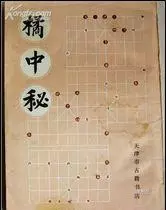 橘中秘
天津市古籍书店